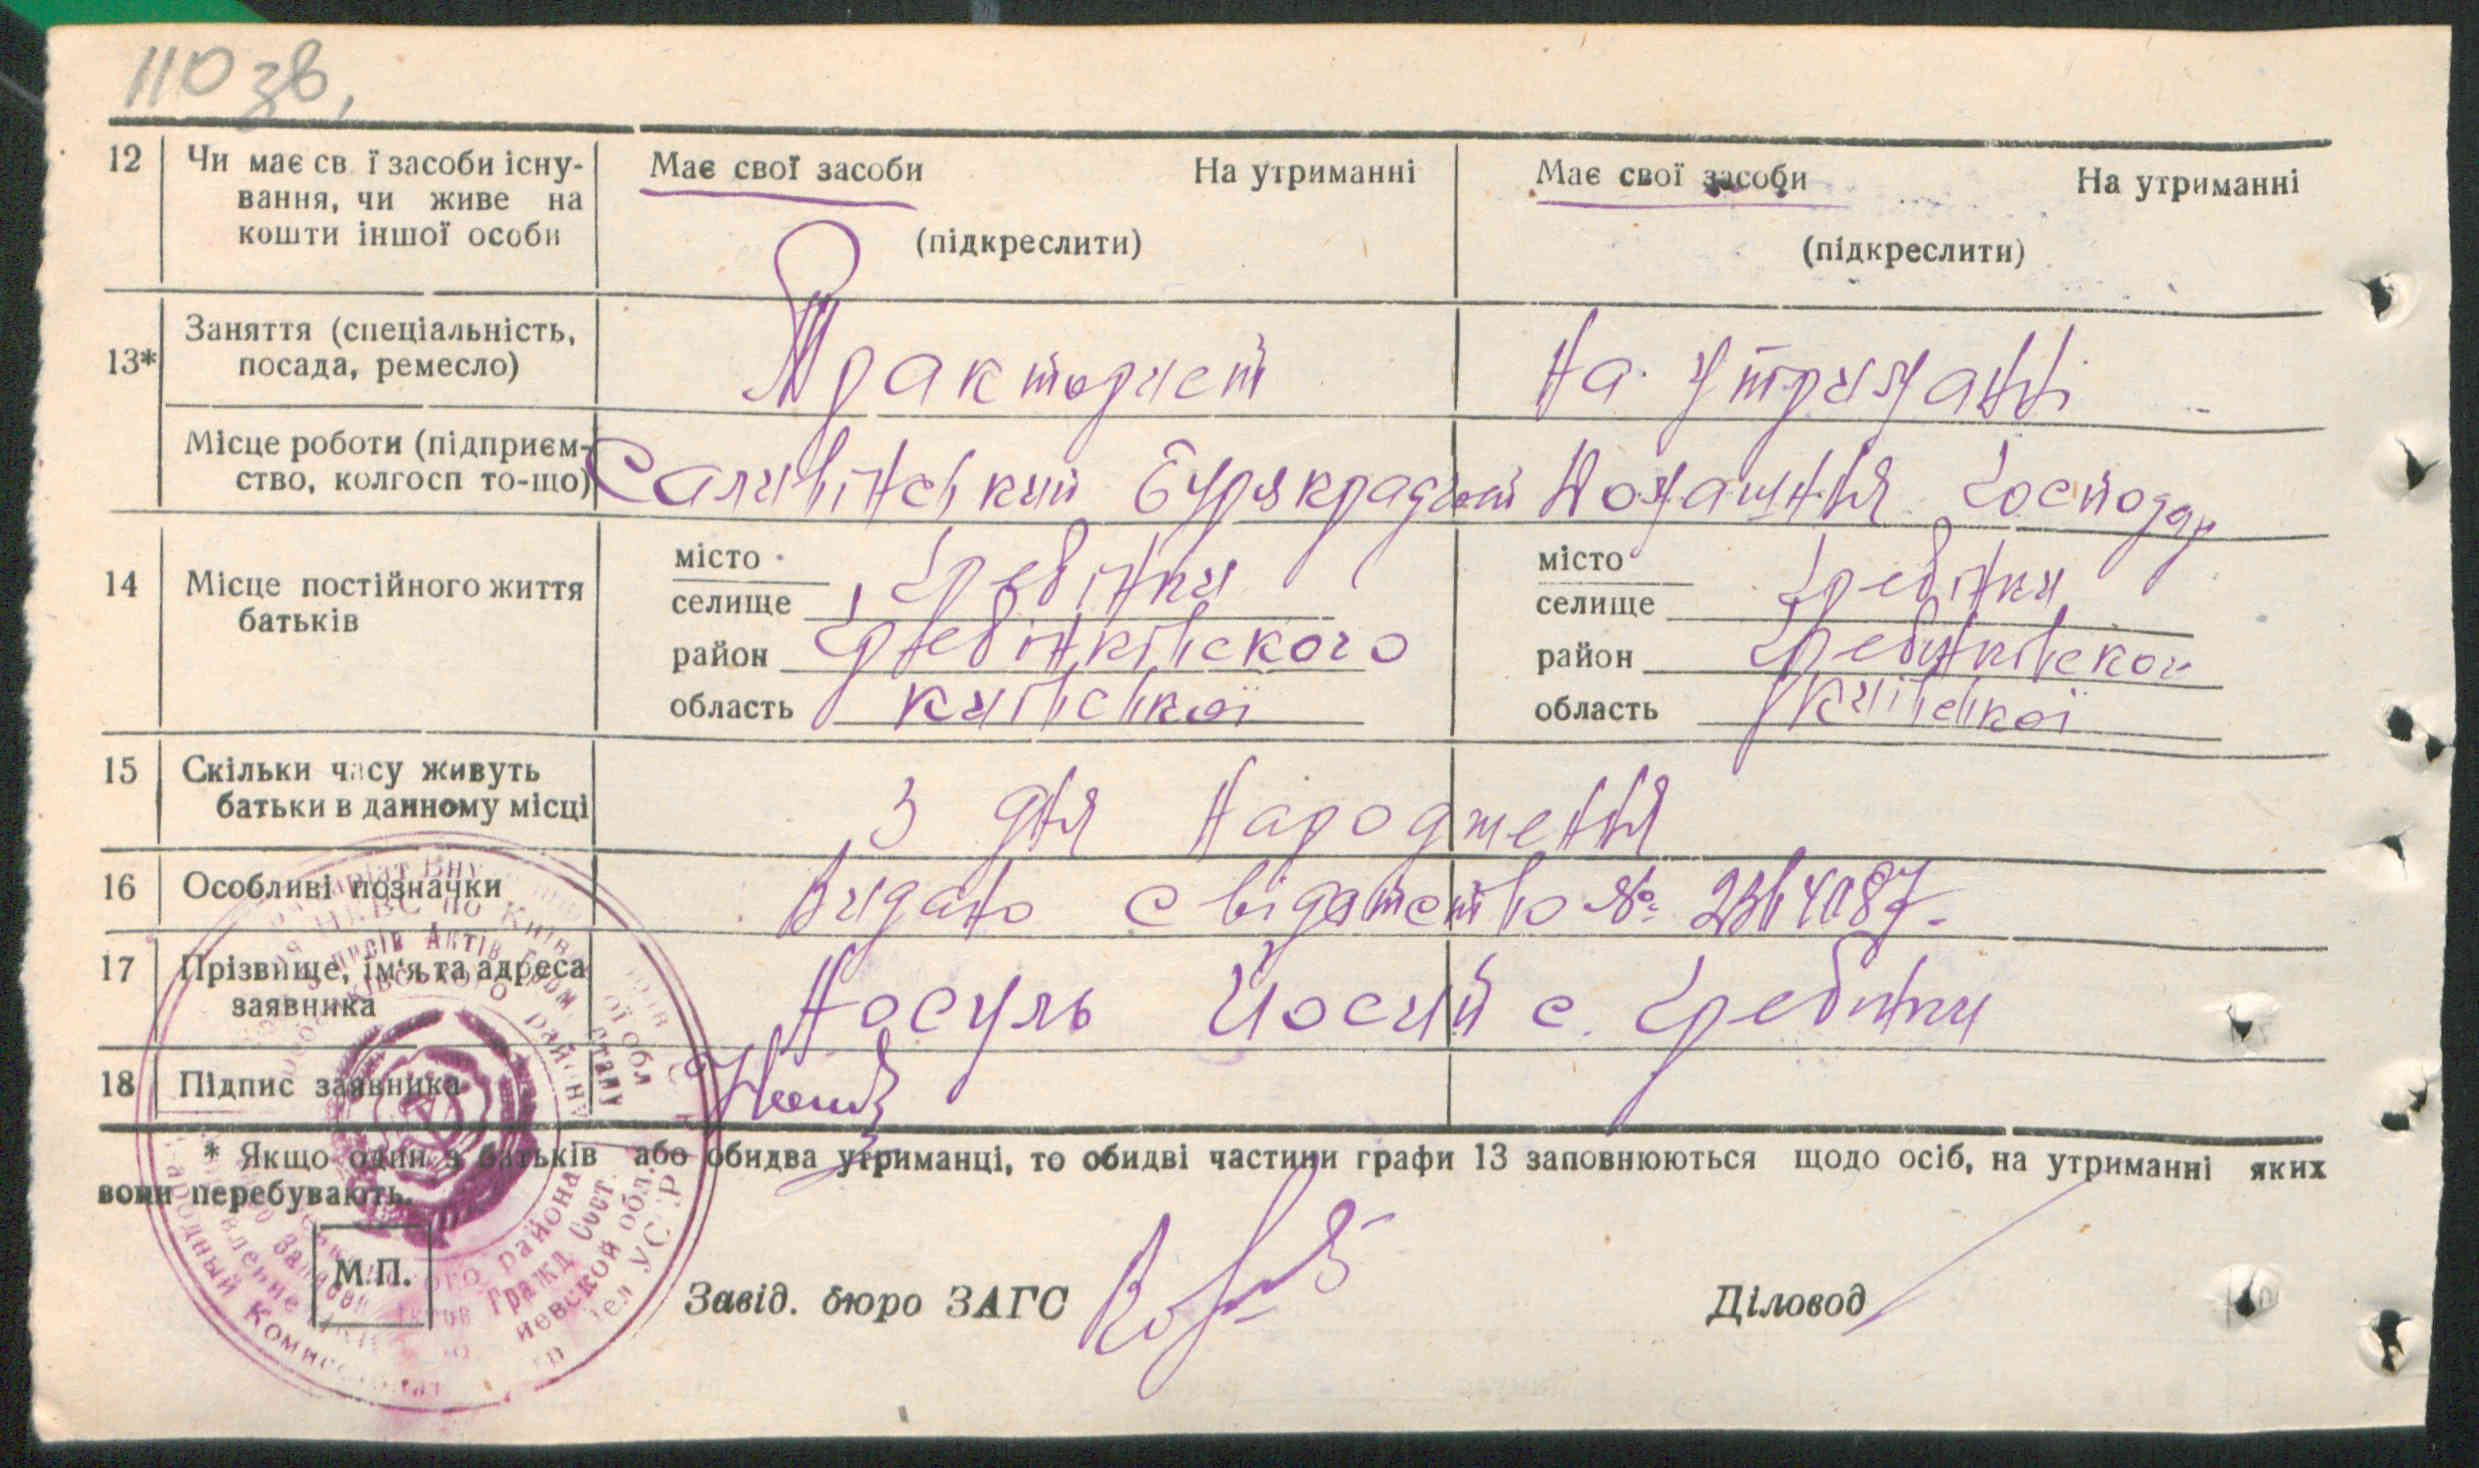 110 зв,
12 Чи має св ї засоби існу- Має свої засоби На утриманні Має свої засоби На утриманні
вання, чи живе на
кошти іншої особи (підкреслити) (підкреслити)
Заняття (спеціальність,
13* посада, ремесло) Тракторист На утриманні
Місце роботи (підприєм-
ство, колгосп то-що) Саливінський Бурякрадгосп Домашня Господар
14 Місце постійного життя місто Гребінки місто Гребінки
батьків селище селище
район Гребінківского район
область київської область київської
15 Скільки часу живуть
батьки в данному місці З дня народження
16 Особливі позначки Видано свідатство №
17 Прізвище, ім'я та адреса
заявника Носуль Йосип с. Гребінки
18 Підпис заявника
* Якщо один з батьків або обидва утриманці, то обидві частини графи 13 заповнюються щодо осіб, на утриманні яких
вони перебувають.
М.П.
Завід. бюро ЗАГС Діловод